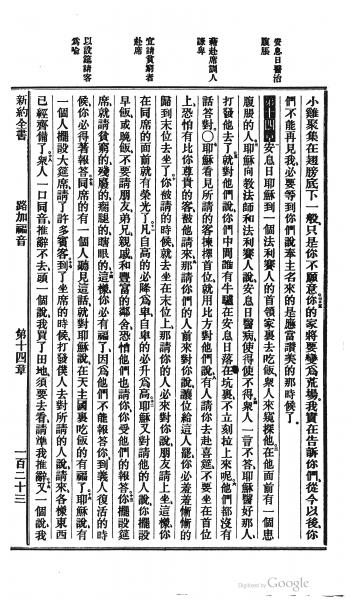 安息日醫治
腹脹
藉赴席訓人
謙卑
宜請貧窮者
赴席
以設筵請客
爲喻
小雞聚集在翅膀底下一般只是你不願意你的家將要變爲荒場我實在告訴你們從今以後你
們不能再見我必要等到你們說奉主名來的是應當讚美的那時候了
第十四章安息日耶穌到一個法利賽人的首領家裏去吃飯衆人窺探他在他面前有一個患
腹脹的人耶穌向教法師和法利賽人說安息日醫病使得使不得衆人一言不答耶穌醫好那人
打發他去了就對他們說你們中間誰有牛驢在安息日落在坑裏不立刻拉上來呢他們都沒有
話答對○耶穌看見所請的客揀擇首位就用比方對他們說有人請你去赴喜筵不要坐在首位
上恐怕有比你尊貴的客被他請來那請你們的人前來對你說讓位給這人罷你必羞羞慚慚的
歸到末位去坐了你被請的時候就去坐在末位上那請你的人必來對你說朋友請上坐這樣你
在同席的面前就有榮光了凡自高的必降爲卑自卑的必升爲高耶穌又對請他的人說你擺設
早飯或晚飯不要請朋友弟兄親戚和豐富的鄰舍恐怕他們也請你你受他們的報答你擺設筵
席就請貧窮的殘廢的瘸腿的瞎眼的這樣你必有福了因爲他們不能報答你到義人復活的時
候你必得著報答同席的有一個人聽見這話就對耶穌說在天主國裏吃飯的有福了耶穌說有
一個人擺設大筵席請了許多賓客到了坐席的時候打發僕人去對所請的人說請來各樣東西
已經齊備了衆人一口同音推辭不去頭一個說我買了田地須要去看請準我推辭又一個說我
新約全書 路加福音 第十四章 一百二十三
Digitized by Google